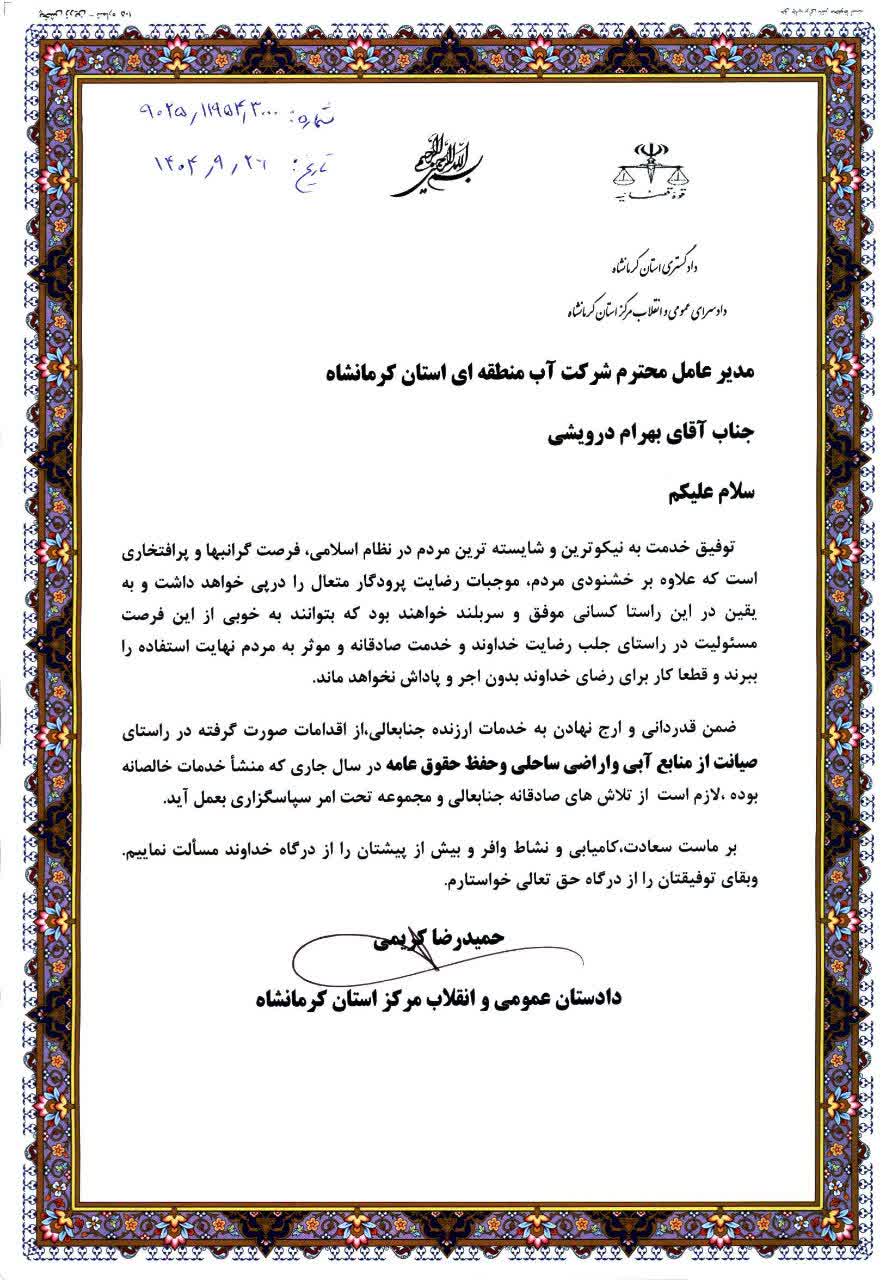 شماره: ۹۰۲۵/۱۱۹۵۴/۳۰۰۰
تاریخ: ۱۴۰۴/۹/۲۶
بسم الله الرحمن الرحیم
قوه قضائیه
دادگستری استان کرمانشاه
دادسرای عمومی و انقلاب مرکز استان کرمانشاه
مدیر عامل محترم شرکت آب منطقه ای استان کرمانشاه
جناب آقای بهرام درویشی
سلام علیکم
توفیق خدمت به نیکوترین و شایسته ترین مردم در نظام اسلامی، فرصت گرانبها و پرافتخاری
است که علاوه بر خشنودی مردم، موجبات رضایت پرودگار متعال را درپی خواهد داشت و به
یقین در این راستا کسانی موفق و سربلند خواهند بود که بتوانند به خوبی از این فرصت
مسئولیت در راستای جلب رضایت خداوند و خدمت صادقانه و موثر به مردم نهایت استفاده را
ببرند و قطعا کار برای رضای خداوند بدون اجر و پاداش نخواهد ماند.
ضمن قدردانی و ارج نهادن به خدمات ارزنده جنابعالی،از اقدامات صورت گرفته در راستای
صیانت از منابع آبی واراضی ساحلی وحفظ حقوق عامه در سال جاری که منشأ خدمات خالصانه
بوده ،لازم است از تلاش های صادقانه جنابعالی و مجموعه تحت امر سپاسگزاری بعمل آید.
بر ماست سعادت،کامیابی و نشاط وافر و بیش از پیشتان را از درگاه خداوند مسألت نماییم.
وبقای توفیقتان را از درگاه حق تعالی خواستارم.
حمیدرضا کریمی
دادستان عمومی و انقلاب مرکز استان کرمانشاه